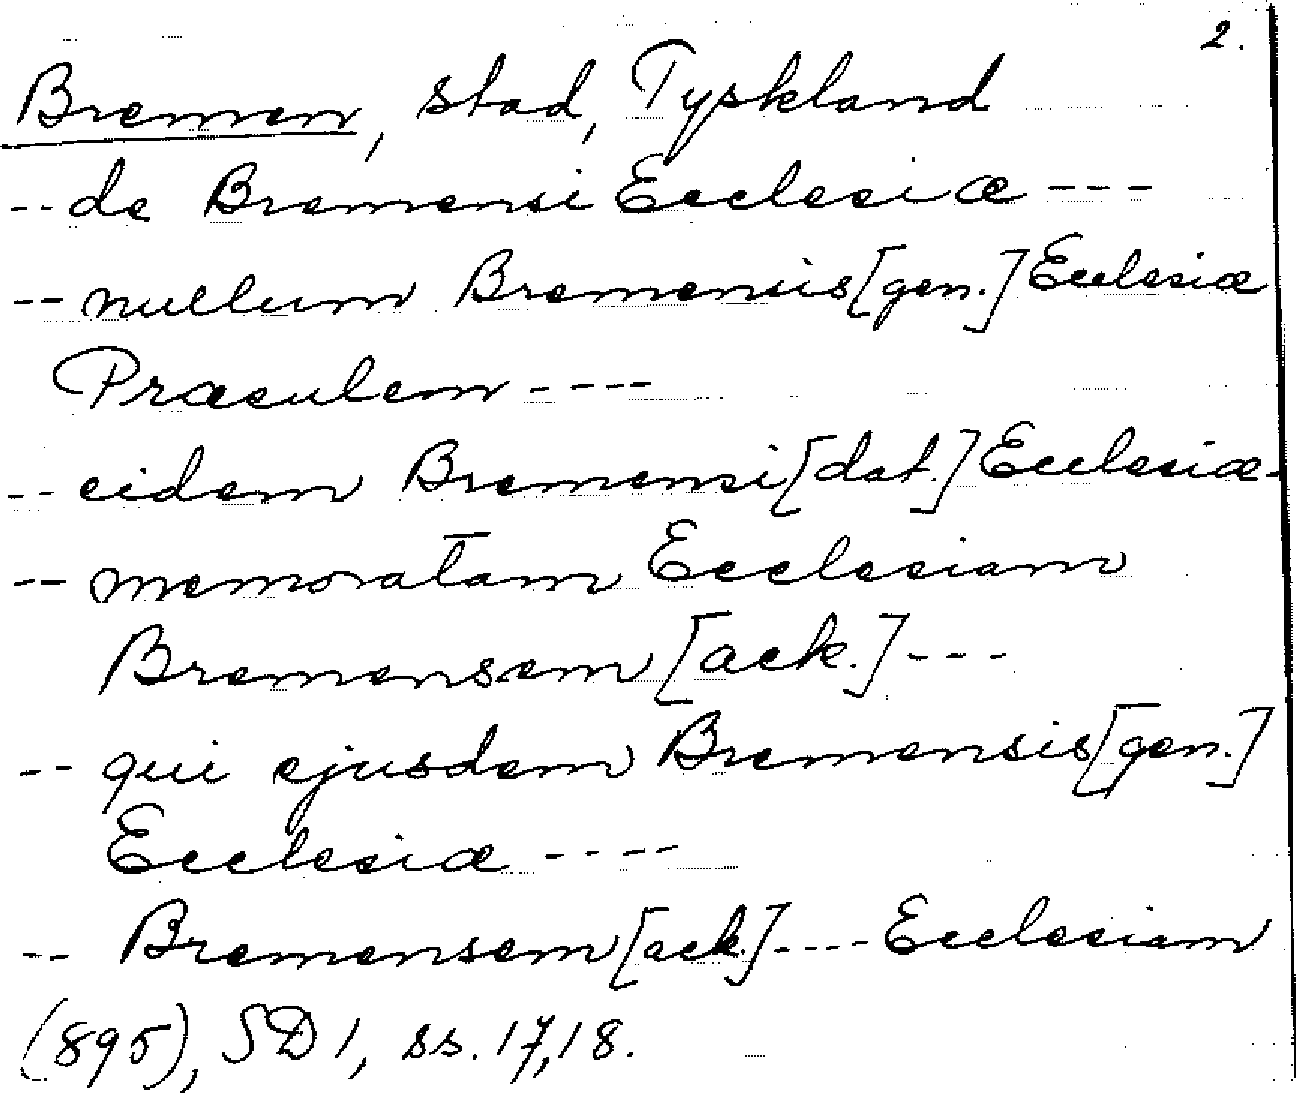 2.
Bremen, stad, Tyskland
-- de Bremensi Ecclesiæ ---
-- nullum Bremensis [gen.] Ecclesiæ
Præsulem ----
-- eidem Bremensi [dat.] Ecclesiæ -
-- memoratam Ecclesiam
Bremensem [ack.] ---
-- qui ejusdem Bremensis [gen.]
Ecclesiæ ----
-- Bremensem [ack.] ---- Ecclesiam
(895), SD 1, ss. 17, 18.